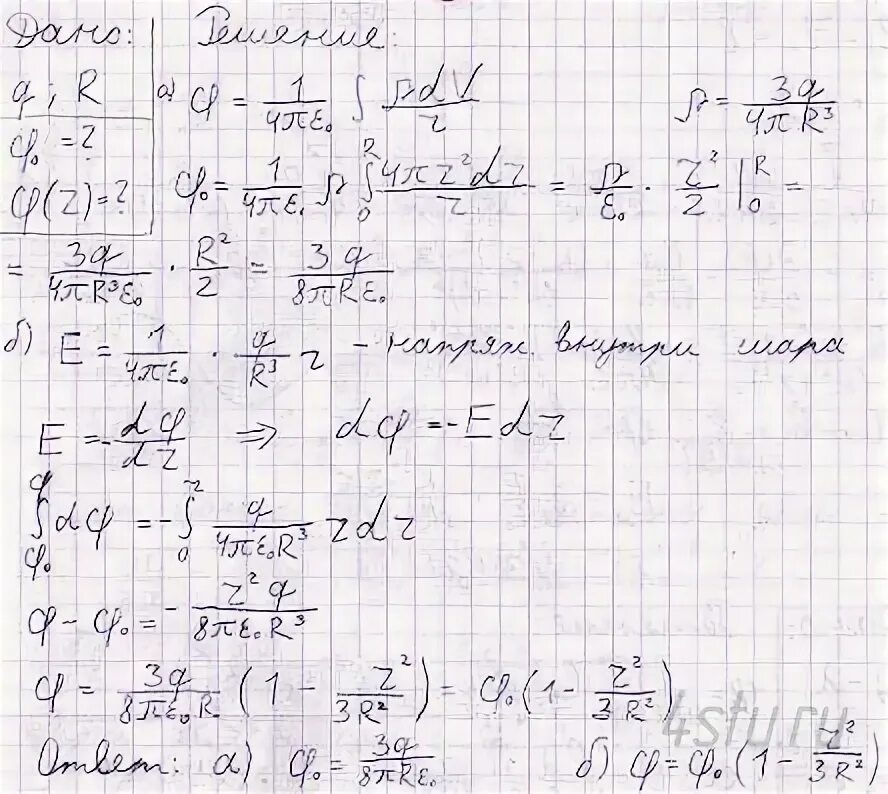 Дано: Решение:
q ; R а) φ = 1/(4πε₀) ∫ ρdV/r ρ = 3q/(4πR³)
φ₀ = ?
φ(r) = ? φ₀ = 1/(4πε₀) ρ ∫₀ᴿ 4πr²dr/r = ρ/ε₀ · r²/2 |₀ᴿ =
= 3q/(4πR³ε₀) · R²/2 = 3q/(8πRε₀)
б) E = 1/(4πε₀) · q/R³ r - напряж. внутри шара
E = - dφ/dr ⇒ dφ = -Edr
∫_φ₀^φ dφ = - ∫₀ʳ q/(4πε₀R³) rdr
φ - φ₀ = - r²q/(8πε₀R³)
φ = 3q/(8πε₀R) (1 - r²/(3R²)) = φ₀(1 - r²/(3R²))
4stu.ru
Ответ: а) φ₀ = 3q/(8πRε₀) б) φ = φ₀(1 - r²/(3R²))